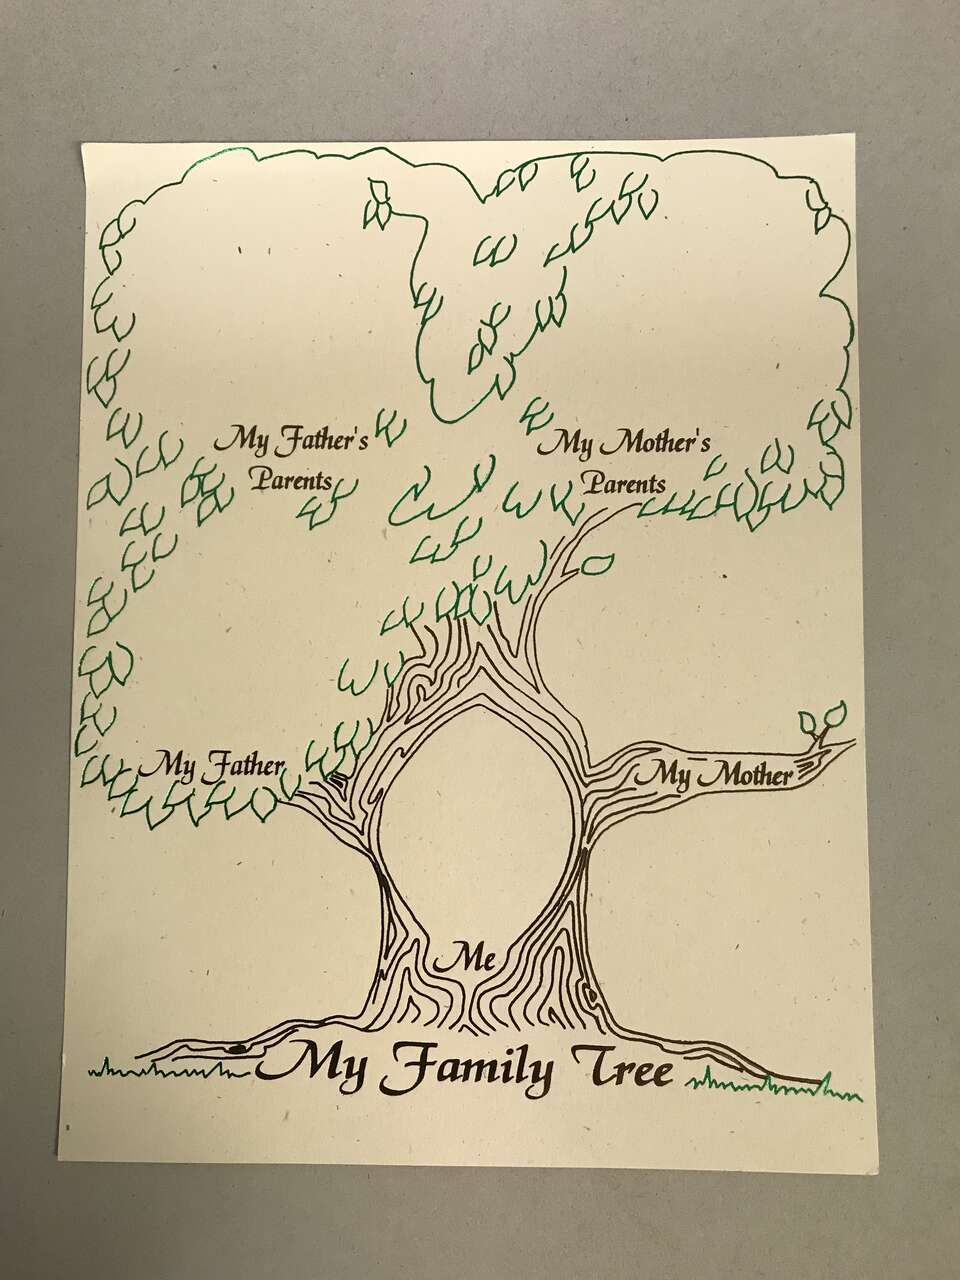 My Father's
Parents
My Mother's
Parents
My Father
My Mother
Me
My Family Tree